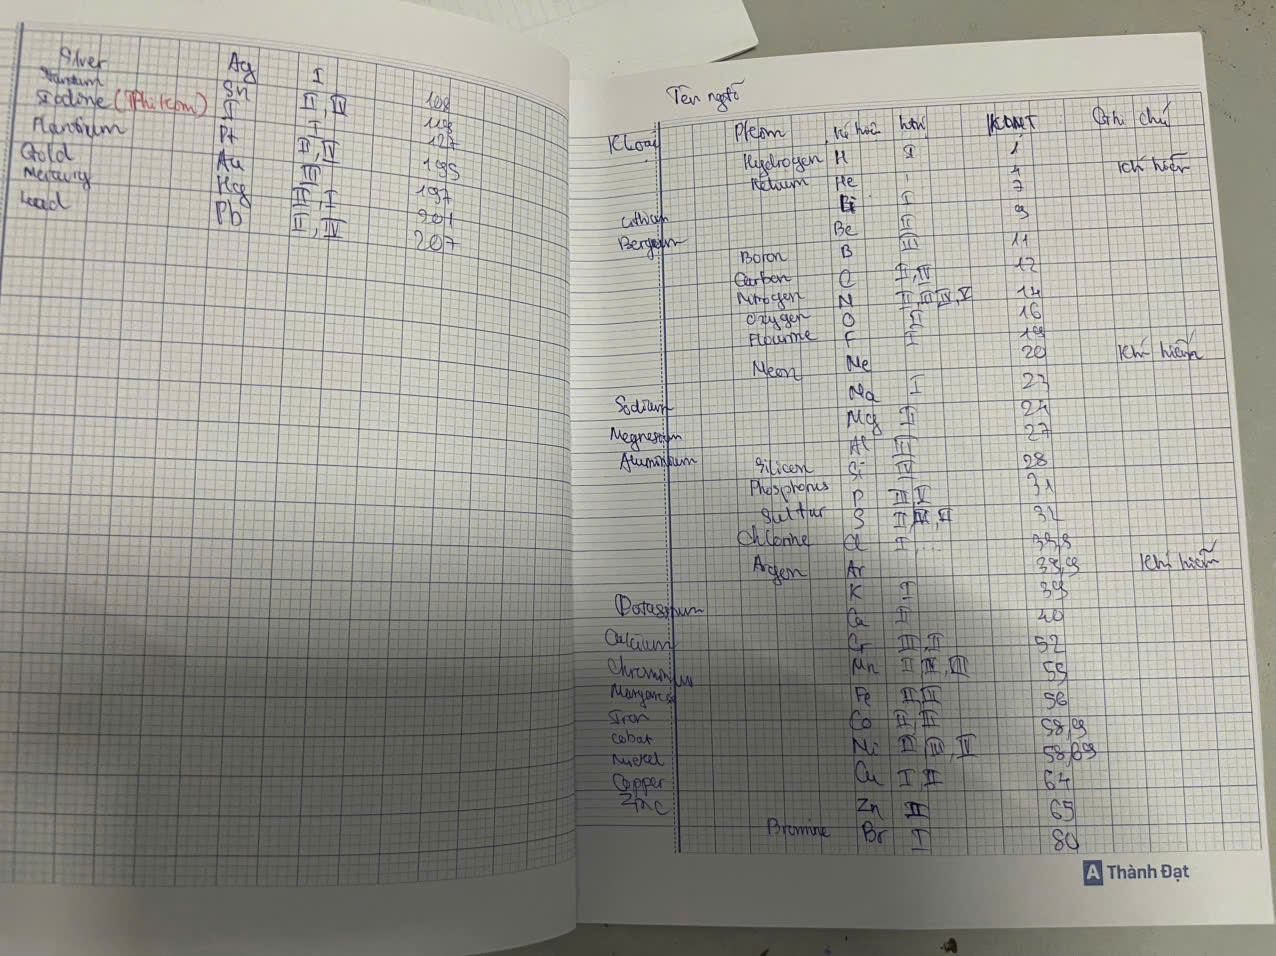 Silver Ag I 108
Sn II, IV 119
Iodine (Phi kim) I I 127
Plantium Pt II, IV 195
Gold Au III 197
Mercury Hg II, I 201
Lead Pb II, IV 207
Tên ngtố
KLoại Pkim Kí hiệu htrị KLNT Ghi chú
Hydrogen H I 1
Helium He - 4 Khí hiếm
Lithium Li I 7
Be II 9
Boron B III 11
Carbon C II, IV 12
Nitrogen N II, III, IV, V 14
Oxygen O II 16
Flourine F I 19
Neon Ne 20 Khí hiếm
Sodium Na I 23
Megnesium Mg II 24
Aluminium Al III 27
Silicon Si IV 28
Phosphorus P III V 31
Sulfur S II IV, VI 32
Chlorine Cl I, ...
Argon Ar 39,9 Khí hiếm
Potassium K I 39
Calcium Ca II 40
Chrominium Cr III, II 52
Manganese Mn II IV, VII 55
Iron Fe II III 56
Cobat Co II, III 58,9
Nickel Ni II III, IV 58,69
Copper Cu I II 64
Zinc Zn II 65
Bromine Br I 80
A Thành Đạt